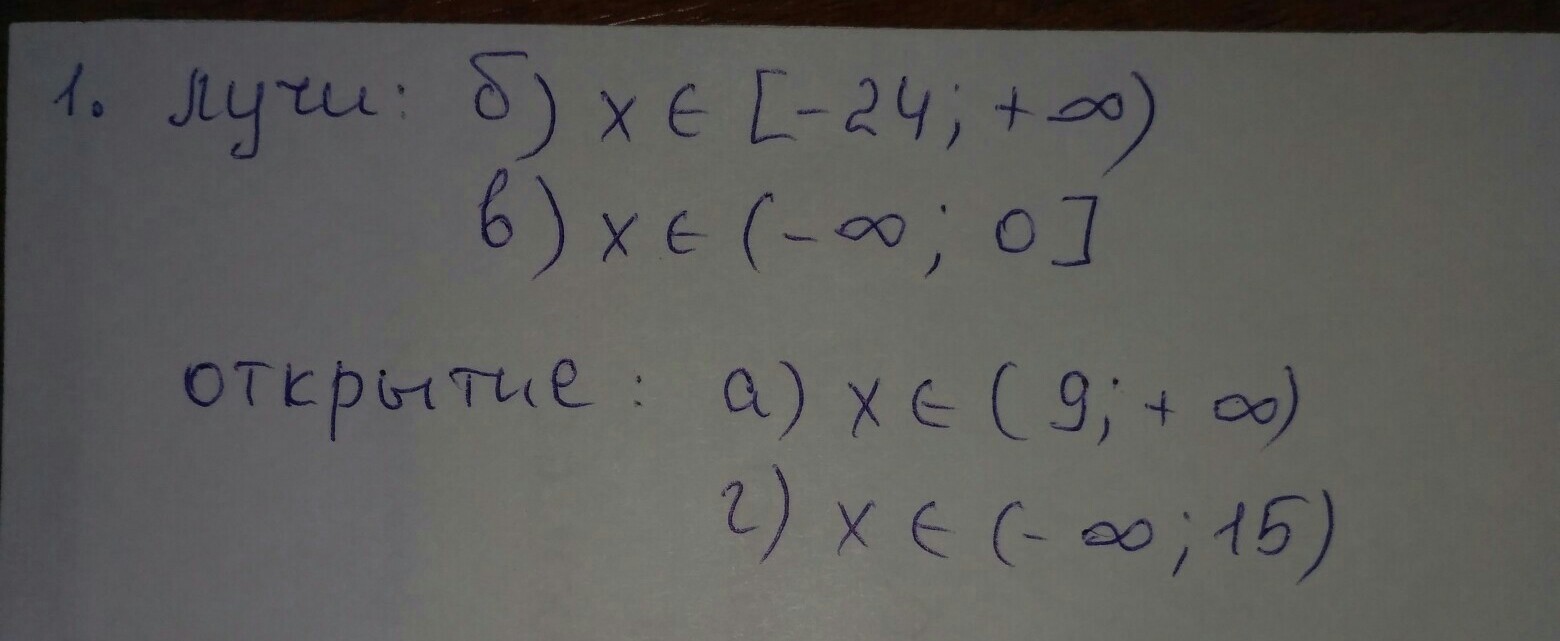 1. лучи: б) x ∈ [-24; +∞)
в) x ∈ (-∞; 0]
открытие: а) x ∈ (9; +∞)
г) x ∈ (-∞; 15)